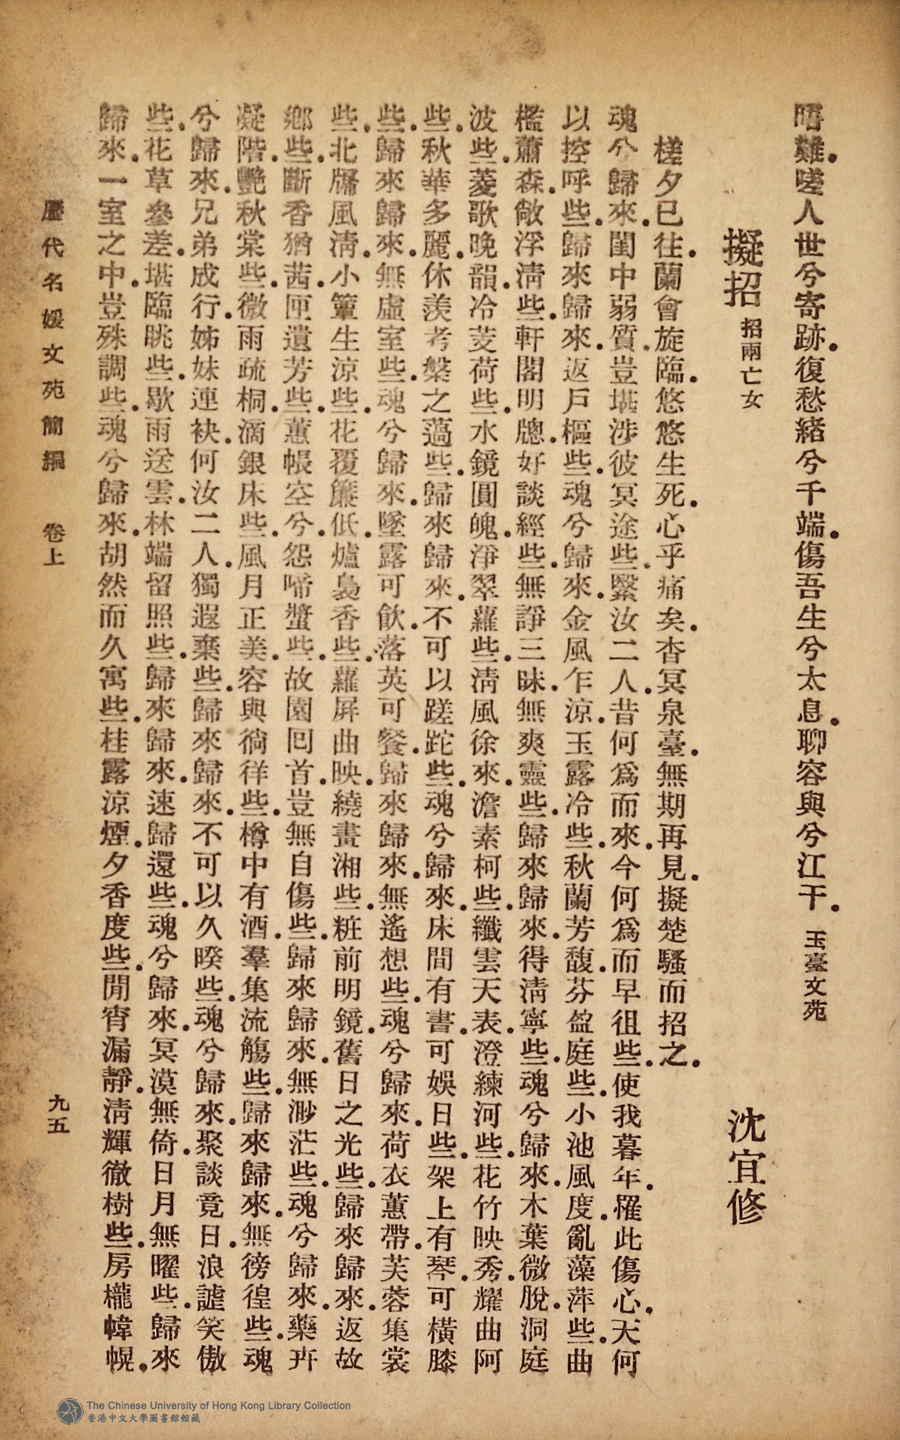 晤難。嗟人世兮寄跡。復愁緒兮千端。傷吾生兮太息。聊容與兮江干。 玉臺文苑
擬招 招兩亡女 沈宜修
槎夕已往。蘭會旋臨。悠悠生死。心乎痛矣。杳冥泉臺。無期再見。擬楚騷而招之。
魂兮歸來。閨中弱質。豈堪涉彼冥途些。繄汝二人。昔何爲而來。今何爲而早徂些。使我暮年。罹此傷心。天何
以控呼些。歸來歸來。返戶樞些。魂兮歸來。金風乍涼。玉露冷些。秋蘭芳馥。芬盈庭些。小池風度。亂藻萍些。曲
檻蕭森。敞浮淸些。軒閣明牕。好談經些。無諍三昧。無爽靈些。歸來歸來。得淸寧些。魂兮歸來。木葉微脫。洞庭
波些。菱歌晚韻。冷芰荷些。水鏡圓魄。淨翠蘿些。淸風徐來。澹素柯些。纖雲天表。澄練河些。花竹映秀。耀曲阿
些。秋華多麗。休羨考槃之薖些。歸來歸來。不可以蹉跎些。魂兮歸來。床間有書。可娛日些。架上有琴。可橫膝
些。歸來歸來。無虛室些。魂兮歸來。墜露可飮。落英可餐。歸來歸來。無遙想些。魂兮歸來。荷衣蕙帶。芙蓉集裳
些。北牖風淸。小簟生涼些。花覆簾低。爐裊香些。蘿屏曲映。繞畫湘些。粧前明鏡。舊日之光些。歸來歸來。返故
鄉些。斷香猶茜。匣遺芳些。蕙帳空兮。怨啼螿些。故園囘首。豈無自傷些。歸來歸來。無渺茫些。魂兮歸來。藥卉
凝階。艷秋棠些。微雨疏桐。滴銀床些。風月正美。容與徜徉些。樽中有酒。羣集流觴些。歸來歸來。無徬徨些。魂
兮歸來。兄弟成行。姊妹連袂。何汝二人。獨遐棄些。歸來歸來。不可以久暌些。魂兮歸來。聚談竟日。浪謔笑傲
些。花草參差。堪臨眺些。歇雨送雲。林端留照些。歸來歸來。速歸還些。魂兮歸來。冥漠無倚。日月無曜些。歸來
歸來。一室之中。豈殊調些。魂兮歸來。胡然而久寓些。桂露涼煙。夕香度些。閒宵漏靜。淸輝徹樹些。房櫳幃幌。
歷代名媛文苑簡編 卷上 九五
The Chinese University of Hong Kong Library Collection
香港中文大學圖書館館藏